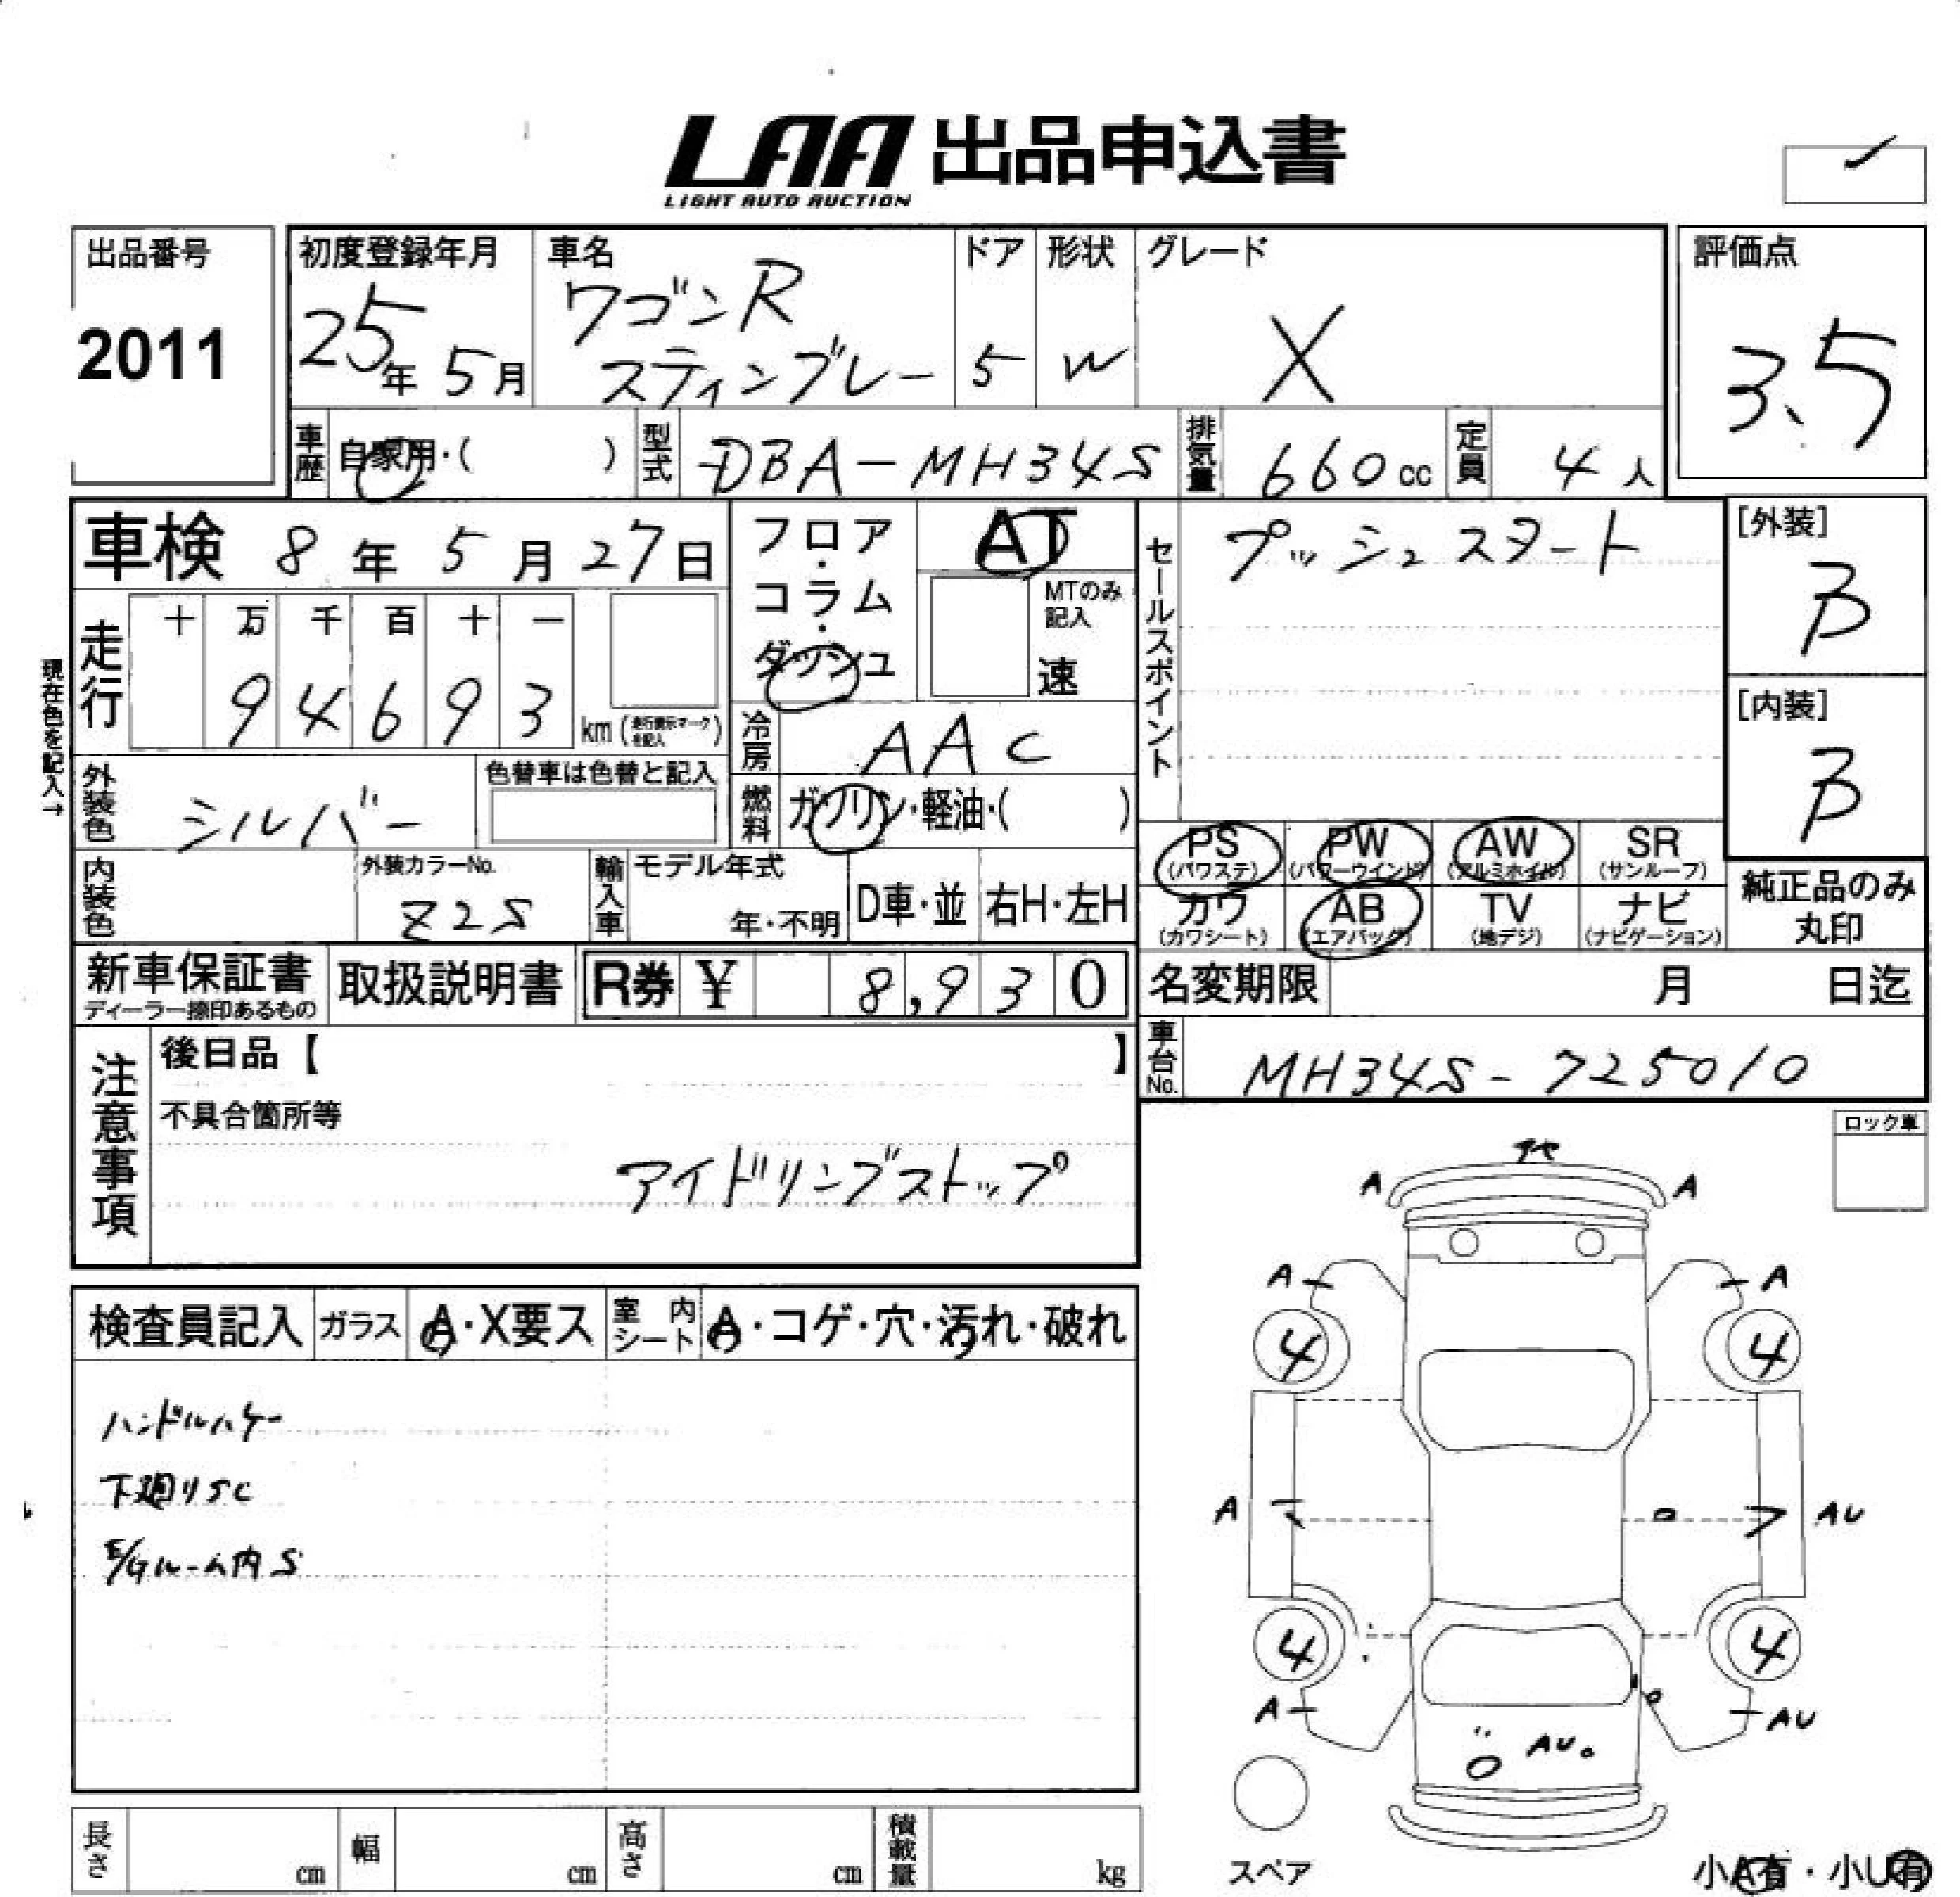 LAA 出品申込書
LIGHT AUTO AUCTION
出品番号
2011
初度登録年月
25年 5月
車名
ワゴンR
スティングレー
ドア
5
形状
W
グレード
X
評価点
3.5
車歴 自家用・( )
型式 DBA-MH34S
排気量 660cc
定員 4人
車検 8年 5月 27日
走行
十 万 千 百 十 一
9 4 6 9 3
km (走行表示マークを記入)
現在色を記入→
フロア・コラム・ダッシュ
AT
MTのみ記入
速
セールスポイント
プッシュスタート
[外装]
B
[内装]
B
冷房 AAC
外装色 シルバー
色替車は色替と記入
燃料 ガソリン・軽油・( )
内装色
外装カラーNo.
Z2S
輸入車
モデル年式
年・不明
D車・並
右H・左H
PS (パワステ)
PW (パワーウインド)
AW (アルミホイル)
SR (サンルーフ)
カワ (カワシート)
AB (エアバッグ)
TV (地デジ)
ナビ (ナビゲーション)
純正品のみ
丸印
新車保証書
ディーラー捺印あるもの
取扱説明書
R券 ¥ 8,930
名変期限 月 日迄
車台No. MH34S-725010
注意事項
後日品【 】
不具合箇所等
アイドリングストップ
ロック車
検査員記入
ガラス A・X要ス
室内シート A・コゲ・穴・汚れ・破れ
ハンドルハゲ
下廻りSC
E/Gルーム内S
A A
A A
4 4
A AU
4 4
A AU
AU
スペア
小A有・小U有
長さ cm
幅 cm
高さ cm
積載量 kg